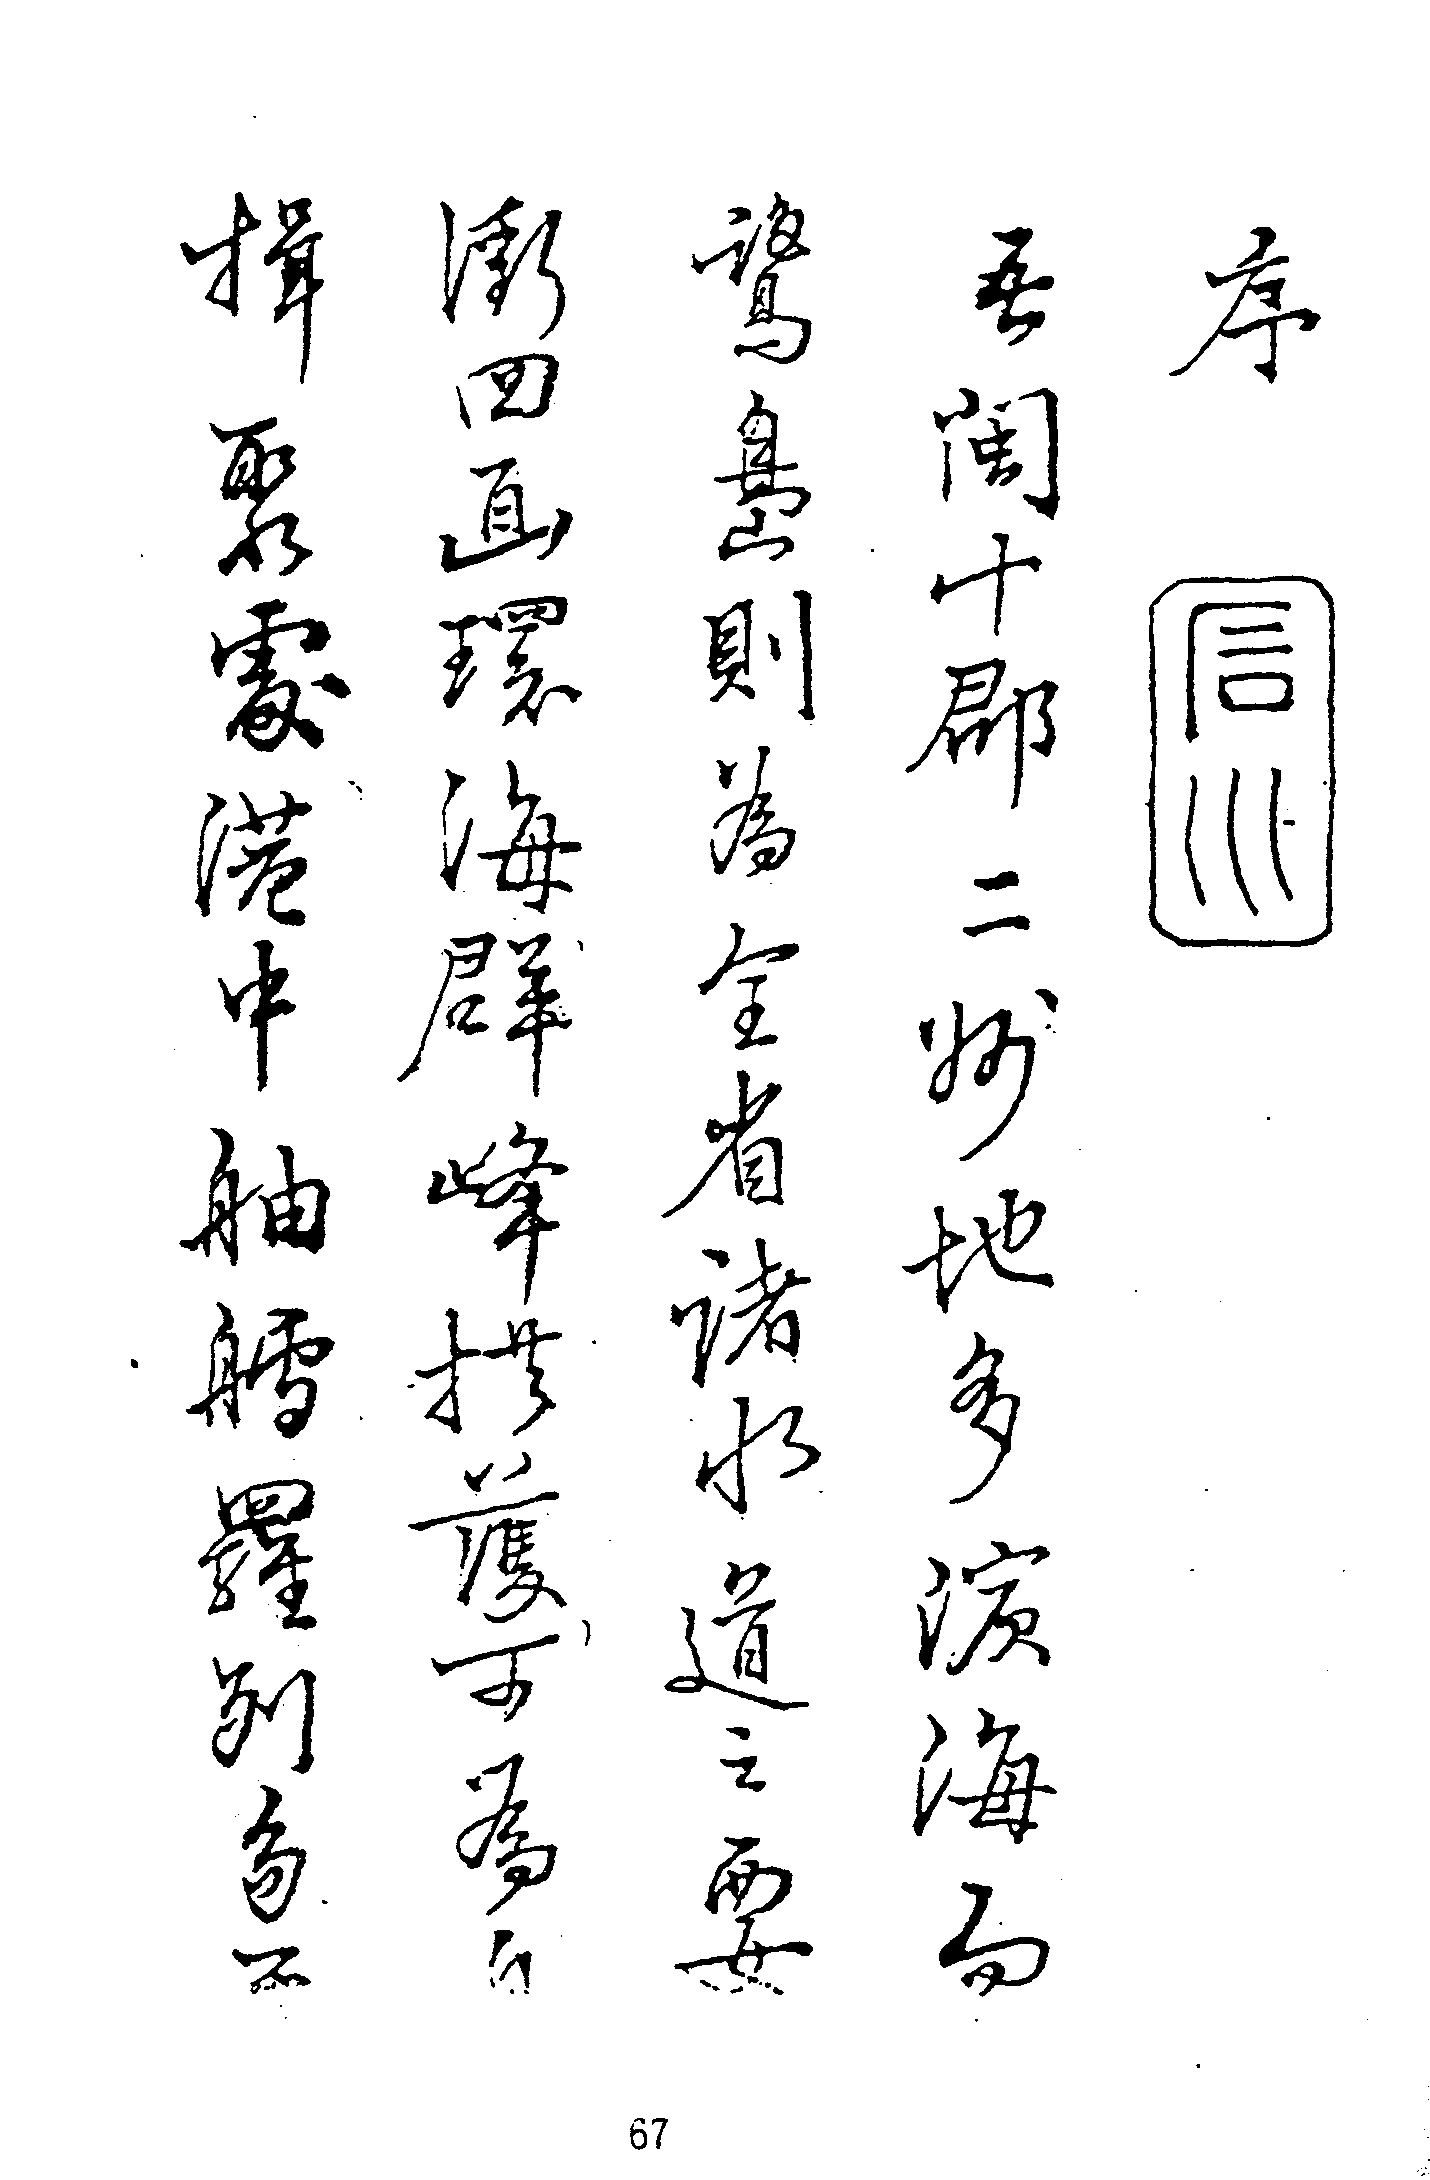 序
信川
吾閩十郡二州地多濱海而
鷺島則為全省諸水道之要
衝四面環海群峰拱護可為舟
楫聚處港中舳艫羅列多不
67